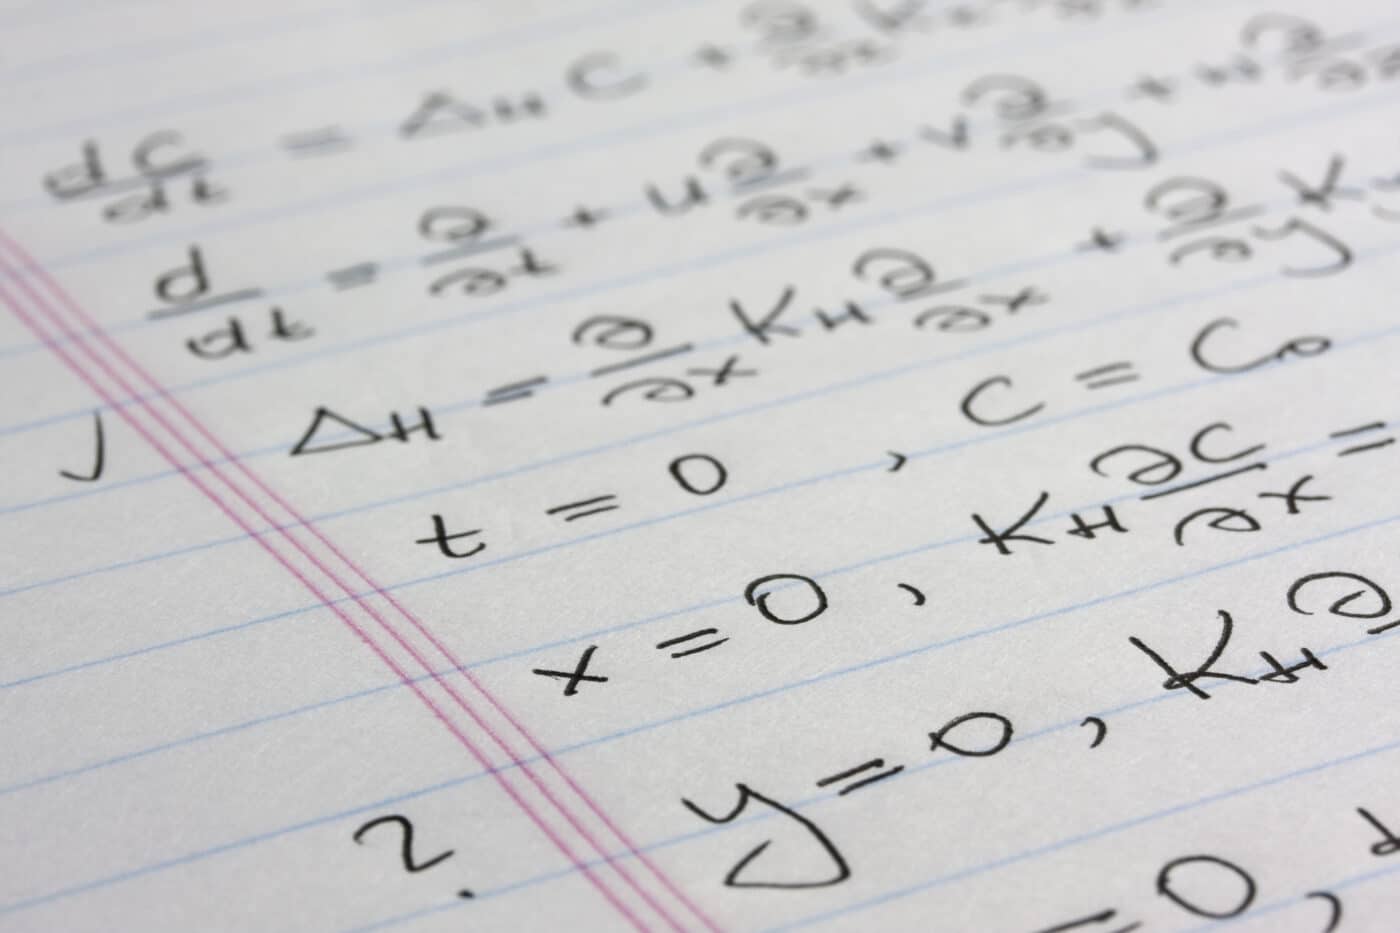 dC/dt = Δ_H C + ∂/∂x K
d/dt = ∂/∂t + u ∂/∂x + v ∂/∂y + w ∂/∂
Δ_H = ∂/∂x K_H ∂/∂x + ∂/∂y K
t = 0 , C = C₀
x = 0 , K_H ∂C/∂x =
y = 0 , K_H ∂
?
= 0 ,